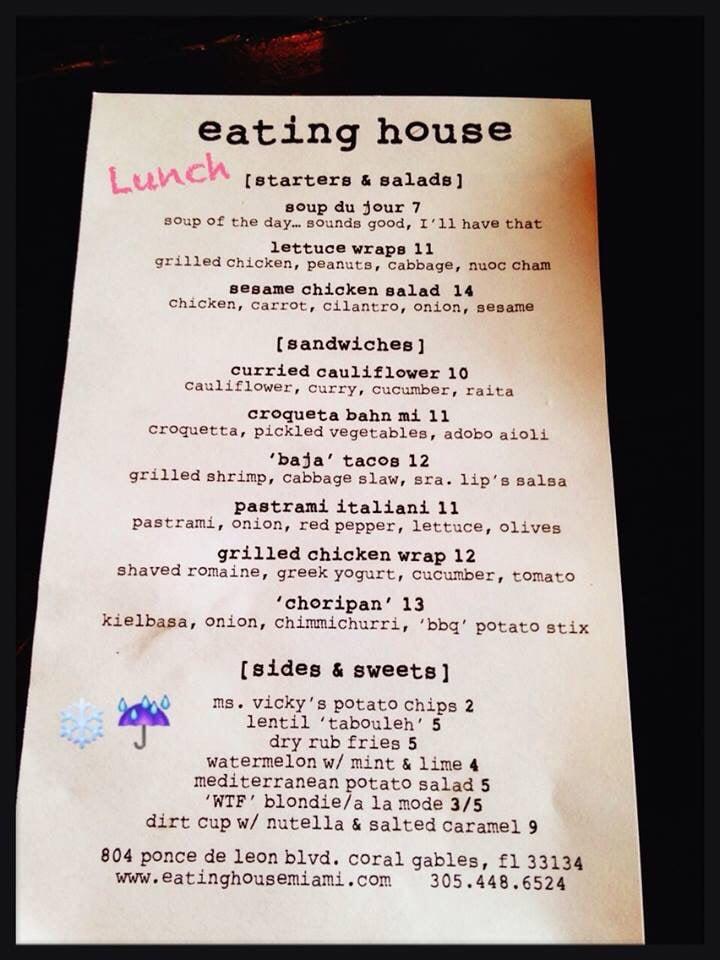 eating house
Lunch
[starters & salads]
soup du jour 7
soup of the day… sounds good, I'll have that
lettuce wraps 11
grilled chicken, peanuts, cabbage, nuoc cham
sesame chicken salad 14
chicken, carrot, cilantro, onion, sesame
[sandwiches]
curried cauliflower 10
cauliflower, curry, cucumber, raita
croqueta bahn mi 11
croquetta, pickled vegetables, adobo aioli
'baja' tacos 12
grilled shrimp, cabbage slaw, sra. lip's salsa
pastrami italiani 11
pastrami, onion, red pepper, lettuce, olives
grilled chicken wrap 12
shaved romaine, greek yogurt, cucumber, tomato
'choripan' 13
kielbasa, onion, chimmichurri, 'bbq' potato stix
[sides & sweets]
ms. vicky's potato chips 2
lentil 'tabouleh' 5
dry rub fries 5
watermelon w/ mint & lime 4
mediterranean potato salad 5
'WTF' blondie/a la mode 3/5
dirt cup w/ nutella & salted caramel 9
804 ponce de leon blvd. coral gables, fl 33134
www.eatinghousemiami.com 305.448.6524